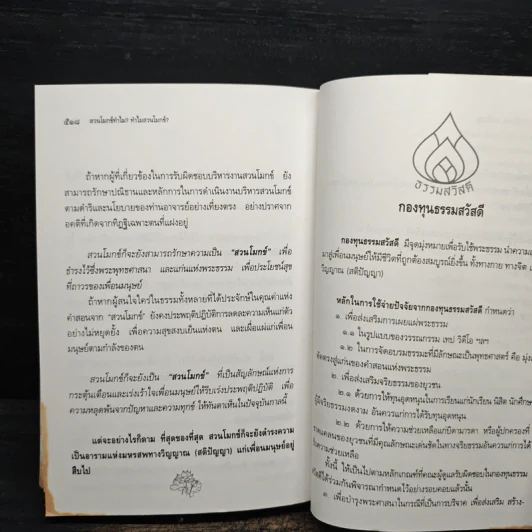 ๕๑๘ สวนโมกข์ทำไม? ทำไมสวนโมกข์?
ถ้าหากผู้ที่เกี่ยวข้องในการรับผิดชอบบริหารงานสวนโมกข์ ยัง
สามารถรักษาปณิธานและหลักการในการดำเนินงานบริหารสวนโมกข์
ตามดำริและนโยบายของท่านอาจารย์อย่างเที่ยงตรง อย่างปราศจาก
อคติที่เกิดจากทิฏฐิเฉพาะตนที่แฝงอยู่
สวนโมกข์ก็จะยังสามารถรักษาความเป็น “สวนโมกข์” เพื่อ
ธำรงไว้ซึ่งพระพุทธศาสนา และแก่นแห่งพระธรรม เพื่อประโยชน์สุข
ที่ถาวรของเพื่อนมนุษย์
ถ้าหากผู้สนใจใคร่ในธรรมทั้งหลายที่ได้ประจักษ์ในคุณค่าแห่ง
คำสอนจาก “สวนโมกข์” ยังคงประพฤติปฏิบัติการลดละความเห็นแก่ตัว
อย่างไม่หยุดยั้ง เพื่อความสุขสงบเย็นแห่งตน และเผื่อแผ่แก่เพื่อน
มนุษย์ตามกำลังของตน
สวนโมกข์ก็จะยังเป็น “สวนโมกข์” ที่เป็นสัญลักษณ์แห่งการ
กระตุ้นเตือนและเร่งเร้าใจเพื่อนมนุษย์ให้รีบเร่งประพฤติปฏิบัติ เพื่อ
ความหลุดพ้นจากปัญหาและความทุกข์ ให้ทันตาเห็นในปัจจุบันกาลนี้
แต่จะอย่างไรก็ตาม ที่สุดของที่สุด สวนโมกข์ก็จะยังดำรงความ
เป็นอารามแห่งมหรสพทางวิญญาณ (สติปัญญา) แก่เพื่อนมนุษย์อยู่
สืบไป
ธรรมสวัสดี
กองทุนธรรมสวัสดี
กองทุนธรรมสวัสดี มีจุดมุ่งหมายเพื่อรับใช้พระธรรม นำความสุข
มาสู่เพื่อนมนุษย์ให้มีชีวิตที่ถูกต้องสมบูรณ์ยิ่งขึ้น ทั้งทางกาย ทางจิต
วิญญาณ (สติปัญญา)
หลักในการใช้จ่ายปัจจัยจากกองทุนธรรมสวัสดี กำหนดว่า
๑. เพื่อส่งเสริมการเผยแผ่พระธรรม
๑.๑ ในรูปแบบของวรรณกรรม เทป วิดีโอ ฯลฯ
๑.๒ ในการจัดอบรมธรรมะที่มีลักษณะเป็นพุทธศาสตร์ คือ
ตรงสู่แก่นของคำสอนแห่งพระธรรม
๒. เพื่อส่งเสริมจริยธรรมของยุวชน
๒.๑ ด้วยการให้ทุนอุดหนุนในการเรียนแก่นักเรียน นิสิต
ผู้มีจริยธรรมงดงาม อันควรแก่การได้รับทุนอุดหนุน
๒.๒ ด้วยการให้ความช่วยเหลือแก่บิดามารดา หรือผู้ปกครองที่
ของยุวชนที่มีคุณลักษณะเด่นชัดในทางจริยธรรมอันควรแก่การได้
ความช่วยเหลือ
ทั้งนี้ ให้เป็นไปตามหลักเกณฑ์ที่คณะผู้ดูแลรับผิดชอบในกองทุนธรรม
สวัสดีได้ร่วมกันพิจารณากำหนดไว้อย่างรอบคอบแล้วนั้น
๓. เพื่อบำรุงพระศาสนาในกรณีที่เป็นการบริจาค เพื่อเสริม สร้าง-